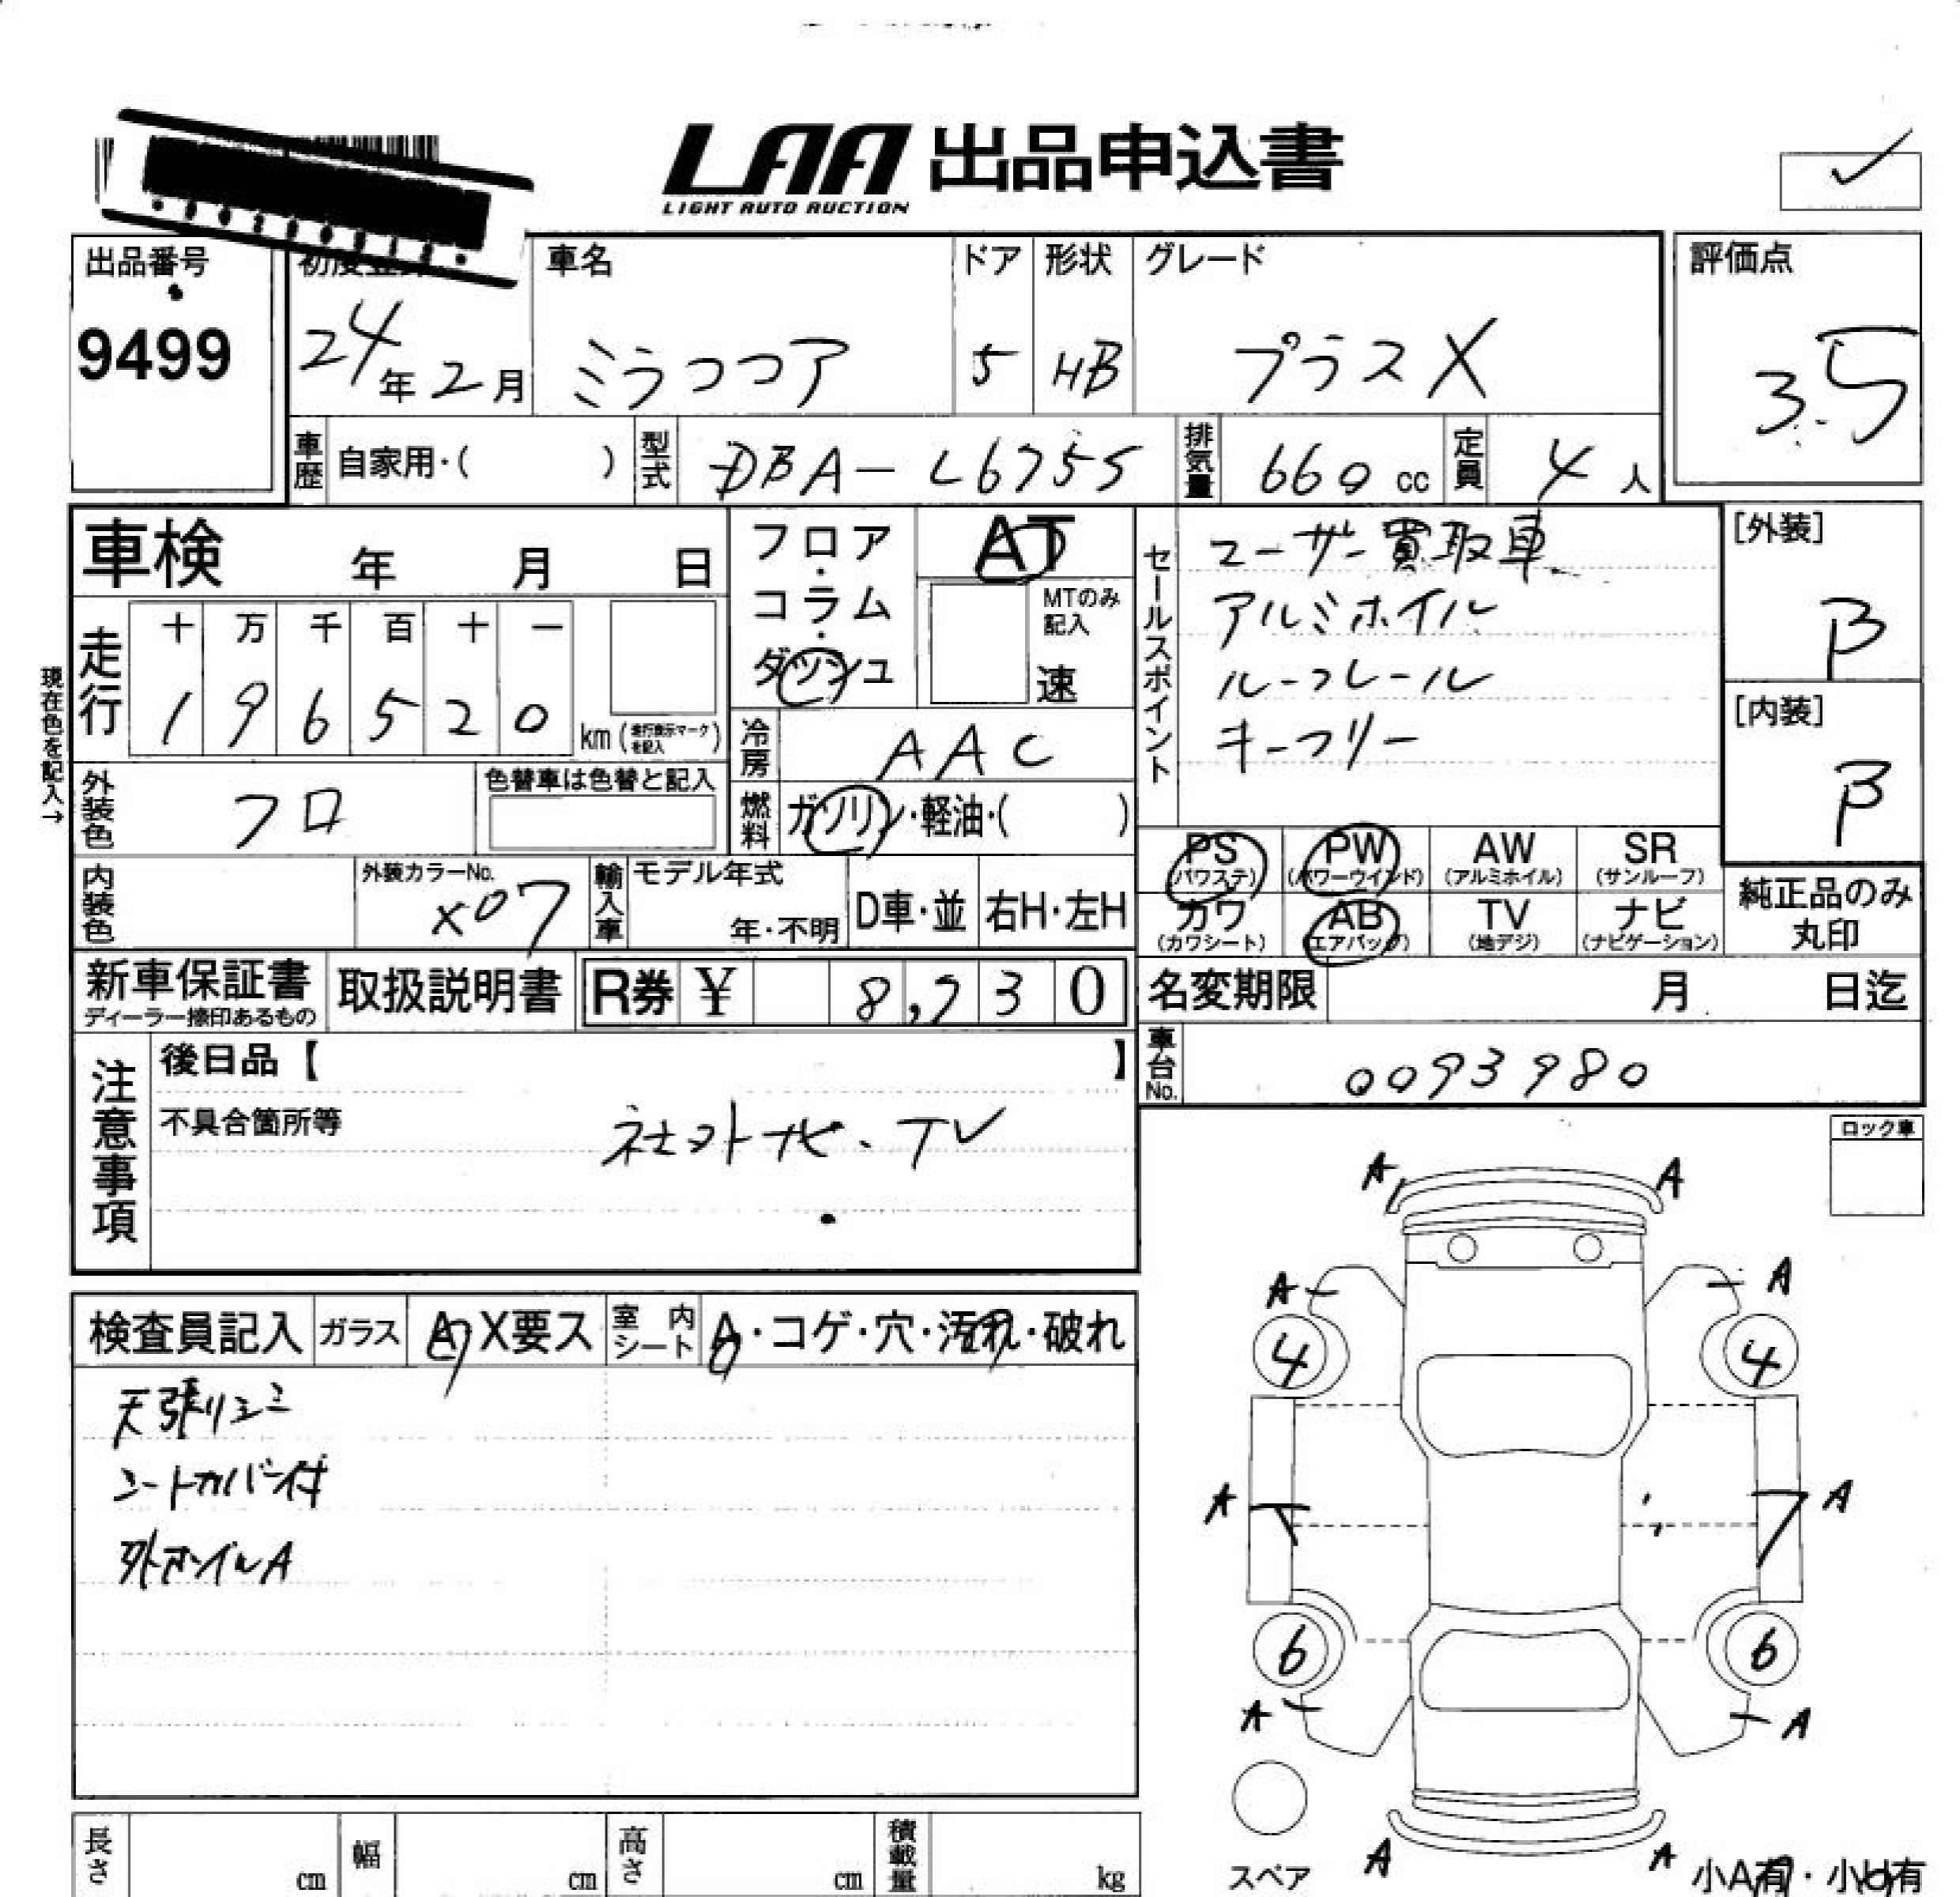 LAA 出品申込書
LIGHT AUTO AUCTION
出品番号
9499
車名
ドア
形状
グレード
評価点
24年2月
ミラココア
5
HB
プラスX
3.5
車歴
自家用・( )
型式
DBA-L675S
排気量
660 cc
定員
4人
車検 年 月 日
フロア・コラム・ダッシュ
AT
MTのみ記入
速
セールスポイント
ユーザー買取車
アルミホイル
ルーフレール
キーフリー
[外装]
B
[内装]
B
現在色を記入→
走行
十 万 千 百 十 一
1 9 6 5 2 0
km (走行表示マークを記入)
冷房
AAC
外装色
クロ
色替車は色替と記入
燃料
ガソリン・軽油・( )
内装色
外装カラーNo.
X07
輸入車
モデル年式
年・不明
D車・並
右H・左H
PS (パワステ)
PW (パワーウインド)
AW (アルミホイル)
SR (サンルーフ)
カワ (カワシート)
AB (エアバッグ)
TV (地デジ)
ナビ (ナビゲーション)
純正品のみ丸印
新車保証書
ディーラー捺印あるもの
取扱説明書
R券 ¥ 8,730
名変期限 月 日迄
車台No.
0093980
注意事項
後日品【 】
不具合箇所等
社外ナビ、TV
ロック車
検査員記入
ガラス
A・X要ス
室内シート
A・コゲ・穴・汚れ・破れ
天張りシミ
シートカバー付
外ホイルA
A A
A A
4 4
A A
6 6
A A
A A
スペア
小A有・小U有
長さ cm
幅 cm
高さ cm
積載量 kg